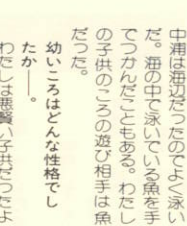 中浦は海辺だったのでよく泳い
だ。海の中で泳いでいる魚を手
でつかんだこともある。わたし
の子供のころの遊び相手は魚
だった。
幼いころはどんな性格でし
たか――。
わたしは悪賢い子供だったよ